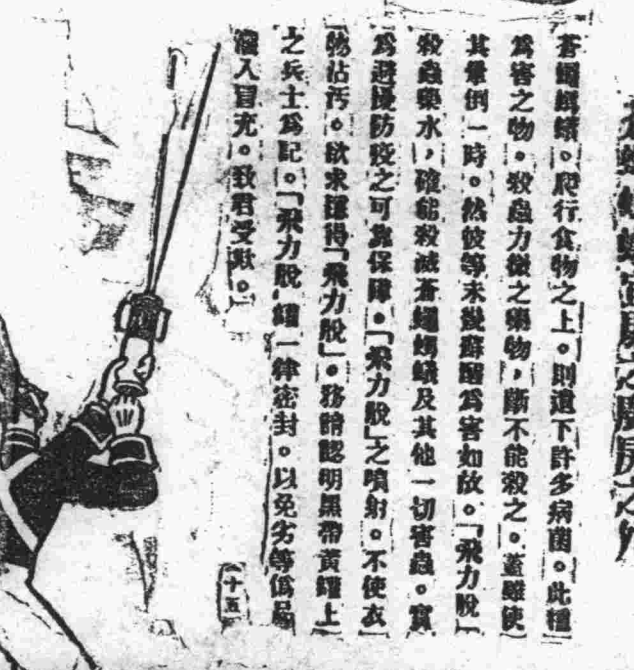 蒼蠅螞蟻。爬行食物之上。則遺下許多病菌。此種
爲害之物。殺蟲力微之藥物,斷不能殺之。蓋雖使
其暈倒一時。然彼等未幾蘇醒爲害如故。「飛力脫」
殺蟲藥水,確能殺滅蒼蠅螞蟻及其他一切害蟲。實
爲避擾防疫之可靠保障。「飛力脫」之噴射。不使衣
物沾汚。欲求獲得「飛力脫」。務請認明黑帶黃罐上
之兵士爲記。「飛力脫」罐一律密封。以免劣等僞品
入冒充。致君受欺。
十五